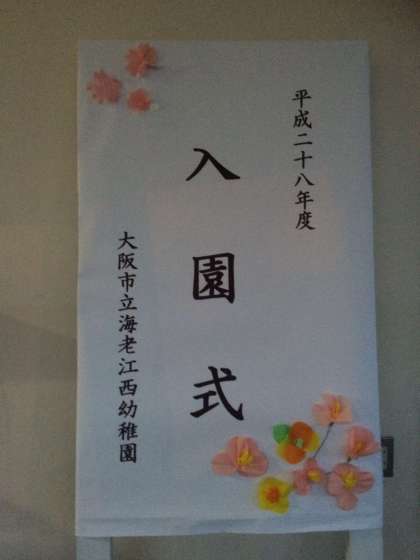 平成二十八年度
入園式
大阪市立海老江西幼稚園